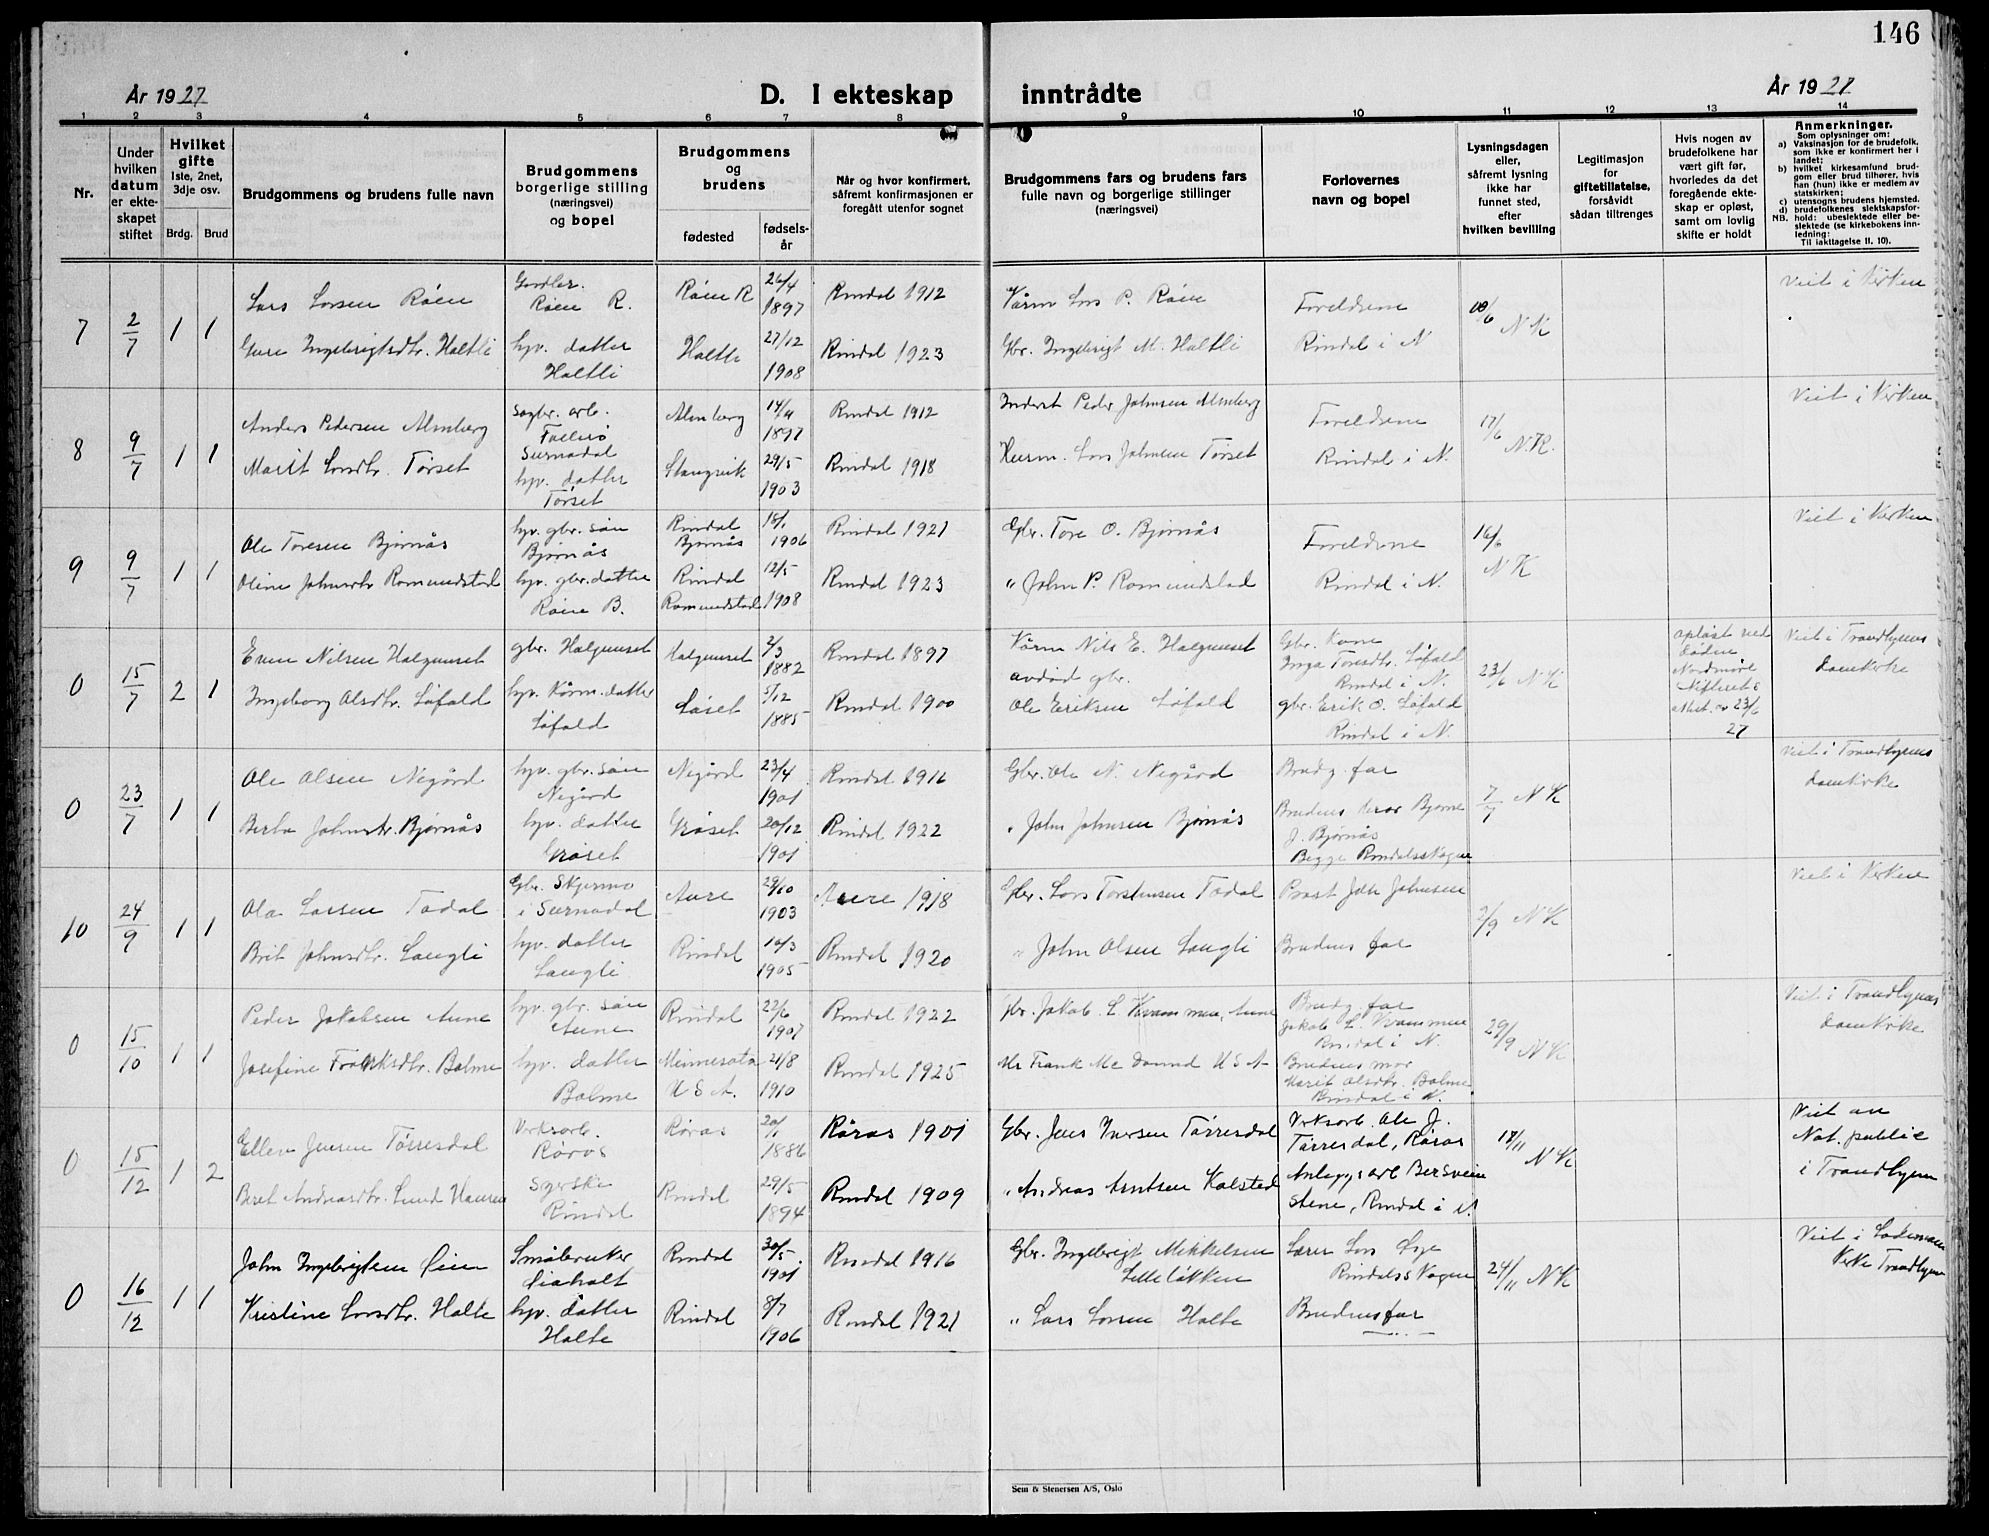 146
År 1927
D. I ekteskap inntrådte
År 1927
1 2 3 4 5 6 7 8 9 10 11 12 13 14
Nr.
Under hvilken datum er ekteskapet stiftet
Hvilket gifte
1ste, 2net, 3dje osv.
Brdg. Brud
Brudgommens og brudens fulle navn
Brudgommens borgerlige stilling (næringsvei) og bopel
Brudgommens og brudens
fødested
fødselsår
Når og hvor konfirmert, såfremt konfirmasjonen er foregått utenfor sognet
Brudgommens fars og brudens fars fulle navn og borgerlige stillinger (næringsvei)
Forlovernes navn og bopel
Lysningsdagen eller, såfremt lysning ikke har funnet sted, efter hvilken bevilling
Legitimasjon for giftetillatelse, forsåvidt sådan tiltrenges
Hvis nogen av brudefolkene har vært gift før, hvorledes da det foregående ekteskap er opløst, samt om lovlig skifte er holdt
Anmerkninger.
Som oplysninger om:
a) Vaksinasjon for de brudefolk, som ikke er konfirmert her i landet;
b) hvilket kirkesamfund brudgom eller brud tilhører, hvis han (hun) ikke er medlem av statskirken;
c) utensogns brudens hjemsted.
d) brudefolkenes slektskapsforhold: ubeslektede eller beslektede (se kirkebokens innledning:
NB.
Til iakttagelse II. 10).
7 2/7 1 1
Lars Larsen Røen
Røen R.
Røen R
26/4 1897
Rindal 1912
Kårm Lars P. Røen
Foreldrene
18/6 N K
Viet i Kirken
Gure Ingebrigtsdtr. Haltli
hjv. datter Haltli
Haltli
27/12 1908
Rindal 1923
Gbr. Ingebrigt M. Haltli
Rindal i N
8 9/7 1 1
Anders Pedersen Almberg
sagbr. arb.
Surnadal
Almberg
14/4 1897
Rindal 1912
Inderst Peder Johnsen Almberg
Foreldrene
17/6 N.K.
Viet i Kirken
Marit Larsdtr. Tørset
hjv. datter Tørset
Stangvik
29/5 1903
Rindal 1918
Husm. Lars Johnsen Tørset
Rindal i N.
9 9/7 1 1
Ole Toresen Bjørnås
hjv. gbr. søn Bjørnås
Rindal Bjørnås
18/1 1906
Rindal 1921
Gbr. Tore O. Bjørnås
Foreldrene
16/6 N K
Viet i Kirken
Oline Johnsdtr Romundstad
hjv. gbr. datter Røen B.
Rindal Romundstad
12/5 1908
Rindal 1923
" John P. Romundstad
Rindal i N.
0 15/7 2 1
Even Nilsen Halgunset
gbr. Halgunset
Halgunset
2/3 1882
Rindal 1897
Kårm Nils E. Halgunset
Gbr. Kone Inga Toresdtr. Løfald Rindal i N.
23/6 N K
opløst ved døden Nordmøre skifterets attest av 23/6 27
Viet i Trondhjems Domkirke
Ingeborg Olsdtr. Løfald
hjv. Kårm. datter Løfald
Løset
5/12 1885
Rindal 1900
avdød gbr. Ole Eriksen Løfald
gbr. Erik O. Løfald Rindal i N.
0 23/7 1 1
Ole Olsen Negård
hjv. gbr. søn Negård
Negård
23/4 1901
Rindal 1916
Gbr. Ole N. Negård
Brudg. far
7/7 N K
Viet i Trondhjems Domkirke
Berta Johnsdtr. Bjørnås
hjv. datter Grøset
Grøset
20/12 1901
Rindal 1922
" John Johnsen Bjørnås
J. Bjørnås Begge Rindalsskogen
10 24/9 1 1
Ola Larsen Todal
Gbr. Skjermo i Surnadal
Aure
29/10 1903
Aure 1918
Gbr. Lars Torstensen Todal
Prost John Johnsen
2/9 N K
Viet i Kirken
Brit Johnsdtr. Langli
hjv. datter Langli
Rindal
16/3 1905
Rindal 1920
" John Olsen Langli
Brudens far
0 15/10 1 1
Peder Jakobsen Aune
hjv. gbr. søn Aune
Rindal
22/6 1907
Rindal 1922
Gbr. Jakob L. Kvammen, Aune
Brudg. far Jakob L. Kvammen Rindal i N.
29/9 N K
Viet i Trondhjems Domkirke
Josefine Franksdtr. Bolme
hjv. datter Bolme
Minnesota U S A.
21/8 1910
Rindal 1925
Mr Frank Mc Donnd U S A
Brudens mor Marit Olsdtr. Bolme Rindal i N.
0 15/12 1 2
Ellen Jensen Tørresdal
Verksarb. Røros
Røros
20/1 1886
Røros 1901
Gbr. Jens Iversen Tørresdal
Verksarb. Ole J. Tørresdal, Røros
18/11 N K
Viet av Not. public i Trondhjem
Beret Andreasdtr. Lund Hansen
Syerske Rindal
Rindal
29/5 1894
Rindal 1909
" Andreas Arntsen Kalstad
Anleggsarb Bersvein Stene, Rindal i N.
0 16/12 1 1
John Ingebrigtsen Øien
Småbruker Øiaholt
Rindal
30/5 1901
Rindal 1916
Gbr. Ingebrigt Mikkelsen Lilleløkken
Lærer Lars Øye Rindalsskogen
24/11 N K
Viet i Lademoen Kirke Trondhjem
Kristine Larsdtr. Halte
hjv. datter Halte
Rindal
8/7 1906
Rindal 1921
" Lars Larsen Halte
Brudens far
Sem & Stenersen A/S, Oslo